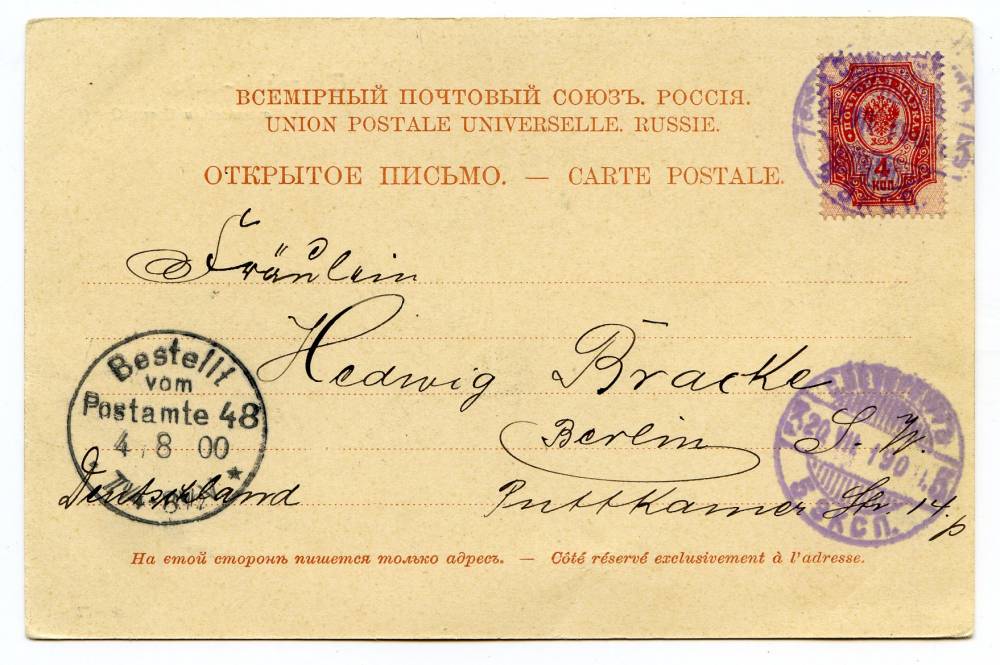 ВСЕМІРНЫЙ ПОЧТОВЫЙ СОЮЗЪ. РОССІЯ.
UNION POSTALE UNIVERSELLE. RUSSIE.
ОТКРЫТОЕ ПИСЬМО. — CARTE POSTALE.
ПОЧТОВАЯ МАРКА
4
КОП.
Fräulein
Hedwig Bracke
Berlin S. W.
Puttkamer Str. 14
Deutschland
Bestellt
vom
Postamte 48
4 8 00
20 VII 190
5 ЭКСП.
На етой сторонѣ пишется только адресъ. — Côté réservé exclusivement à l'adresse.